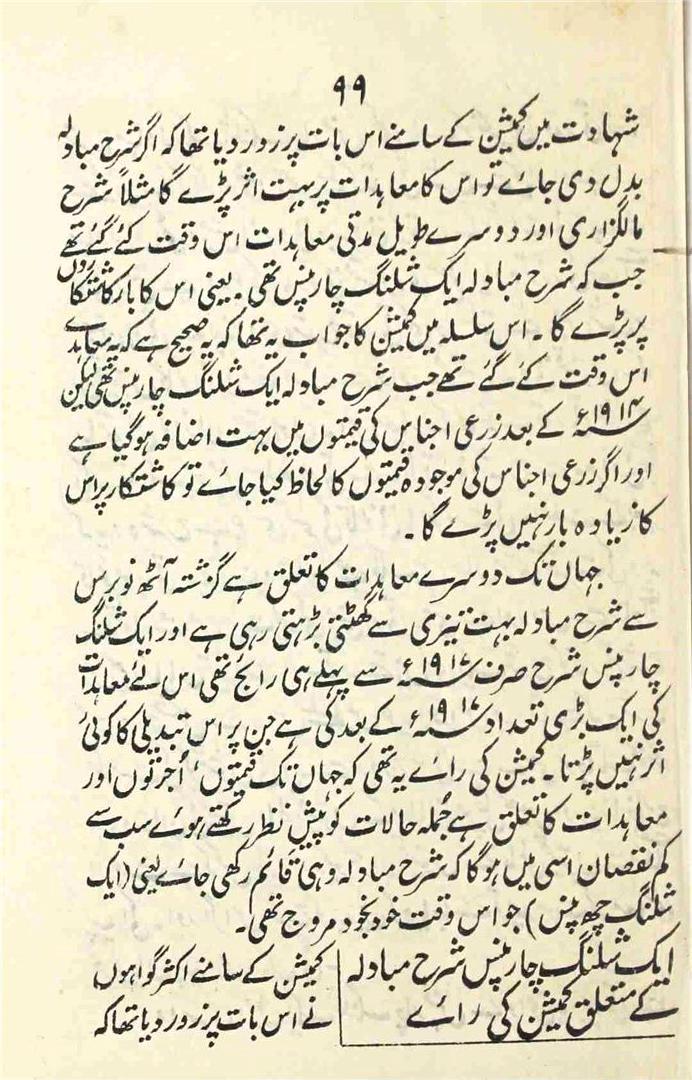 ۹۹
شہادت میں کمیشن کے سامنے اس بات پر زور دیا تھا کہ اگر شرح مبادلہ
بدل دی جائے تو اس کا معاہدات پر بہت اثر پڑے گا مثلاً شرح
مالگزاری اور دوسرے طویل مدتی معاہدات اس وقت کئے گئے تھے
جب کہ شرح مبادلہ ایک شلنگ چار پنس تھی ۔ یعنی اس کا بار کاشتکاروں
پر پڑے گا ۔ اس سلسلہ میں کمیشن کا جواب یہ تھا کہ یہ صحیح ہے کہ یہ معاہدے
اس وقت کئے گئے تھے جب شرح مبادلہ ایک شلنگ چار پنس تھی لیکن
۱۹۱۴ء کے بعد زرعی اجناس کی قیمتوں میں بہت اضافہ ہو گیا ہے
اور اگر زرعی اجناس کی موجودہ قیمتوں کا لحاظ کیا جائے تو کاشتکار پر اس
کا زیادہ بار نہیں پڑے گا ۔
جہاں تک دوسرے معاہدات کا تعلق ہے گزشتہ آٹھ نو برس
سے شرح مبادلہ بہت تیزی سے گھٹتی بڑہتی رہی ہے اور ایک شلنگ
چار پنس شرح صرف ۱۹۱۷ء سے پہلے ہی رائج تھی اس لئے معاہدات
کی ایک بڑی تعداد ۱۹۱۷ء کے بعد کی ہے جن پر اس تبدیلی کا کوئی
اثر نہیں پڑتا ۔ کمیشن کی رائے یہ تھی کہ جہاں تک قیمتوں ' اُجرتوں اور
معاہدات کا تعلق ہے جُملہ حالات کو پیش نظر رکھتے ہوئے سب سے
کم نقصان اسی میں ہوگا کہ شرح مبادلہ وہی قائم رکھی جائے یعنی (ایک
شلنگ چھ پنس) جو اس وقت خود بخود مروج تھی ۔
ایک شلنگ چار پنس شرح مبادلہ
کے متعلق کمیشن کی رائے
کمیشن کے سامنے اکثر گواہوں
نے اس بات پر زور دیا تھا کہ